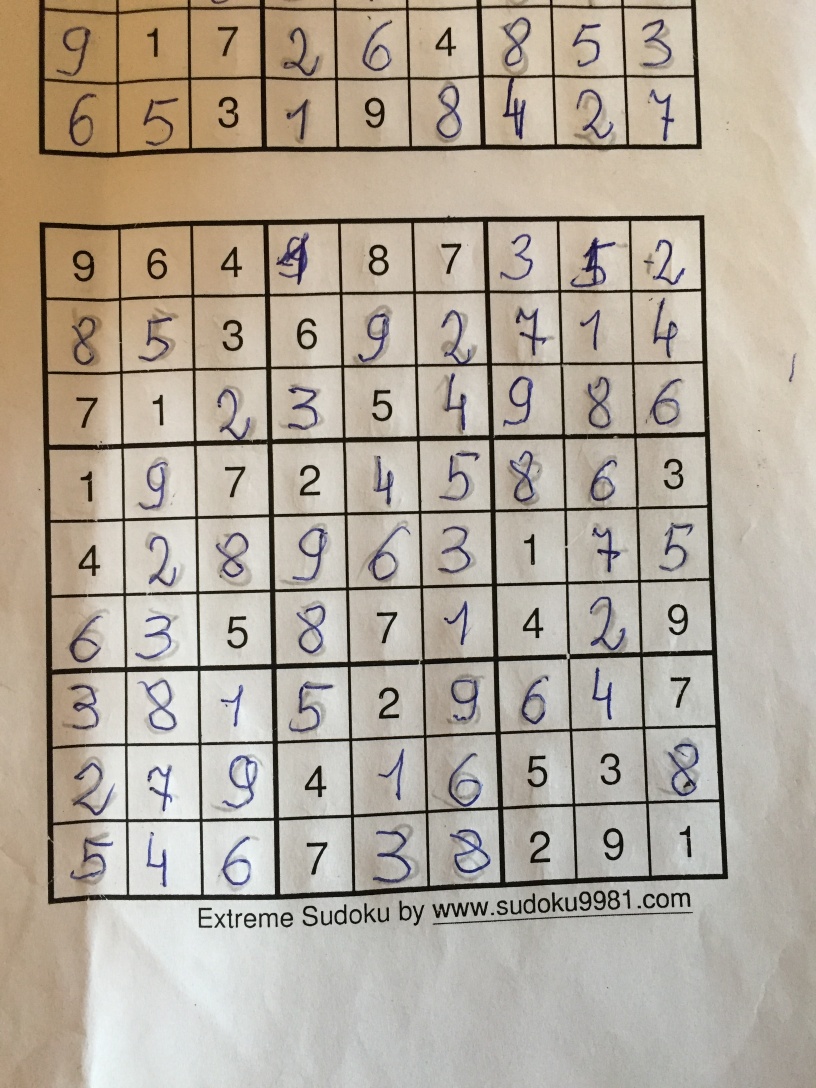 9 1 7 2 6 4 8 5 3
6 5 3 1 9 8 4 2 7
9 6 4 1 8 7 3 5 2
8 5 3 6 9 2 7 1 4
7 1 2 3 5 4 9 8 6
1 9 7 2 4 5 8 6 3
4 2 8 9 6 3 1 7 5
6 3 5 8 7 1 4 2 9
3 8 1 5 2 9 6 4 7
2 7 9 4 1 6 5 3 8
5 4 6 7 3 8 2 9 1
Extreme Sudoku by www.sudoku9981.com